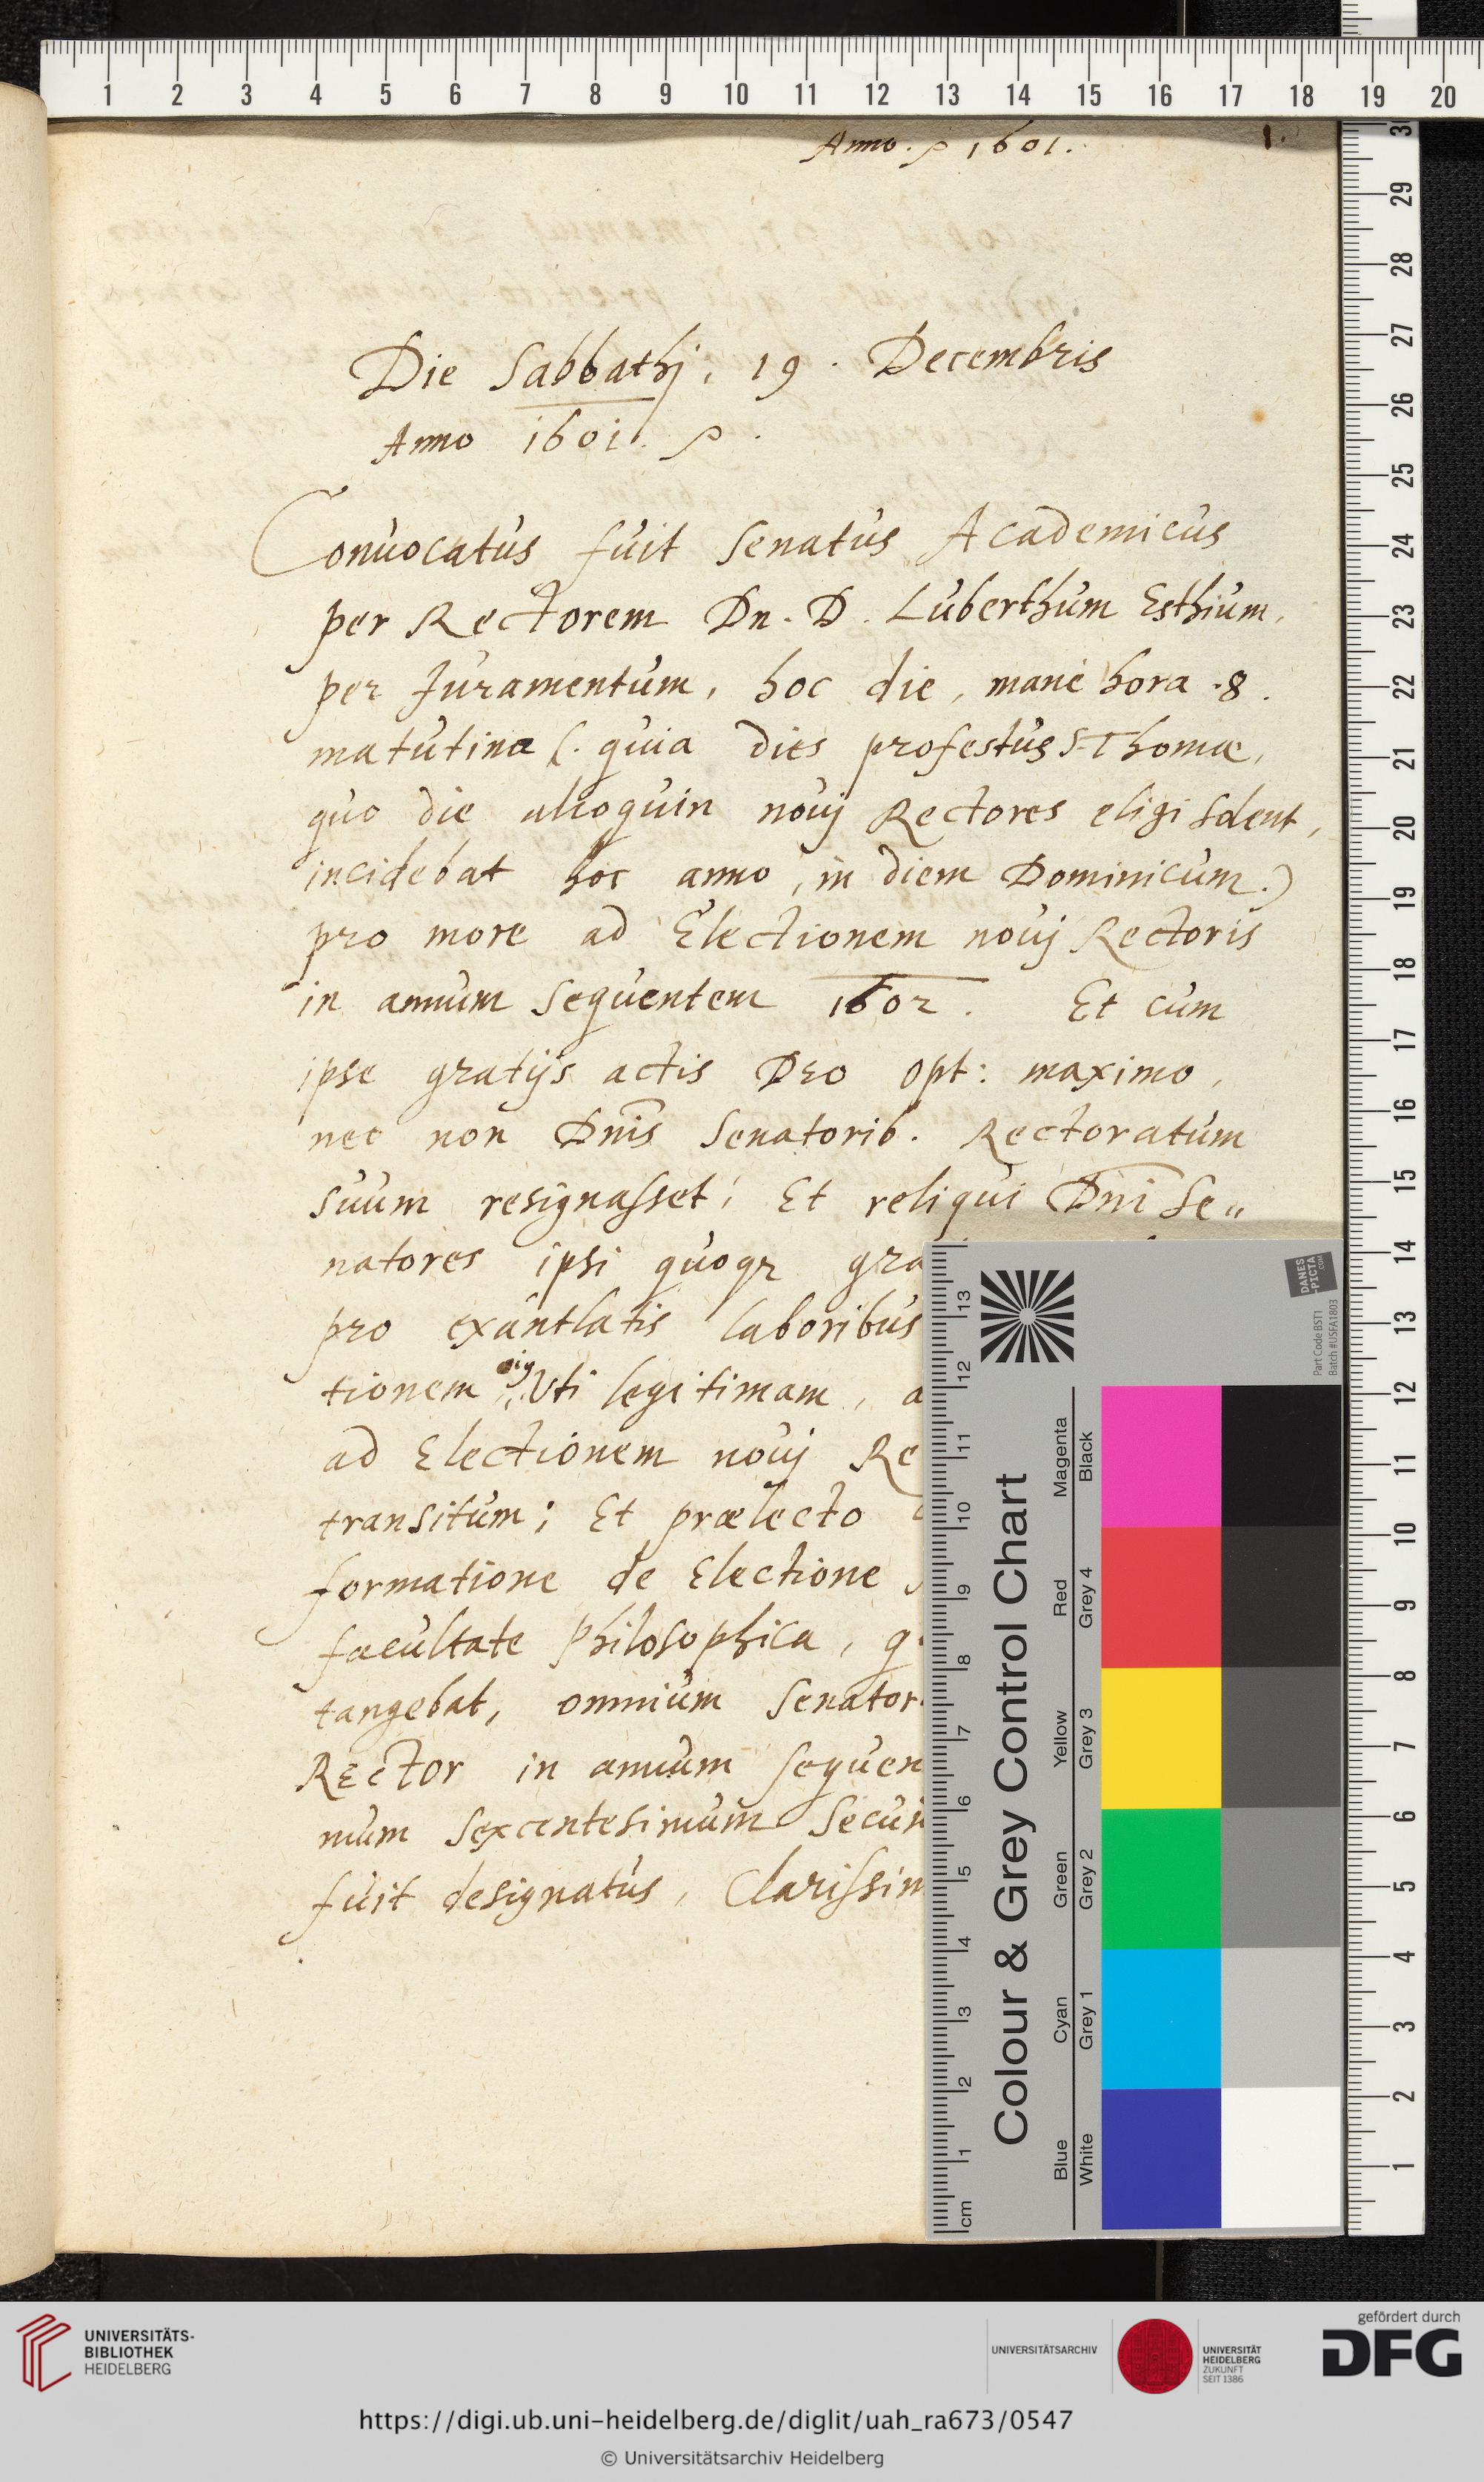 Anno . 1601.
1.
Die Sabbathj, 19. Decembris
Anno 1601.
Conuocatus fuit Senatus Academicus
per Rectorem Dn. D. Luberthum Esthium,
per Juramentum, hoc die, mane hora .8.
matutina (. quia dies profestus S. Thomæ,
quo die alioquin nouj Rectores eligi solent,
incidebat hoc anno, in diem Dominicum.)
pro more ad Electionem nouj Rectoris
in annum sequentem 1602. Et cum
ipse gratijs actis Deo opt: maximo,
nec non Dnis Senatorib. Rectoratum
suum resignasset; Et reliqui Dni Se„
natores ipsi quoqz gra
pro exantlatis laboribus
tionem Uti legitimam, a
ad Electionem nouj Re
transitum; Et prælecto
formatione de Electione
facultate Philosophica, q
tangebat, omnium Senator
Rector in annum sequen
mum Sexcentesimum Secun
fuit designatus, Clarissim
Colour & Grey Control Chart
Magenta
Black
Red
Grey 4
Yellow
Grey 3
Green
Grey 2
Cyan
Grey 1
Blue
White
cm
1 2 3 4 5 6 7 8 9 10 11 12 13
DANES
PICTA
.COM
Part Code BST1
Batch #USFA1803
1 2 3 4 5 6 7 8 9 10 11 12 13 14 15 16 17 18 19 20
1 2 3 4 5 6 7 8 9 10 11 12 13 14 15 16 17 18 19 20 21 22 23 24 25 26 27 28 29 3
UNIVERSITÄTS-
BIBLIOTHEK
HEIDELBERG
UNIVERSITÄTSARCHIV
UNIVERSITÄT
HEIDELBERG
ZUKUNFT
SEIT 1386
gefördert durch
DFG
https://digi.ub.uni-heidelberg.de/diglit/uah_ra673/0547
© Universitätsarchiv Heidelberg